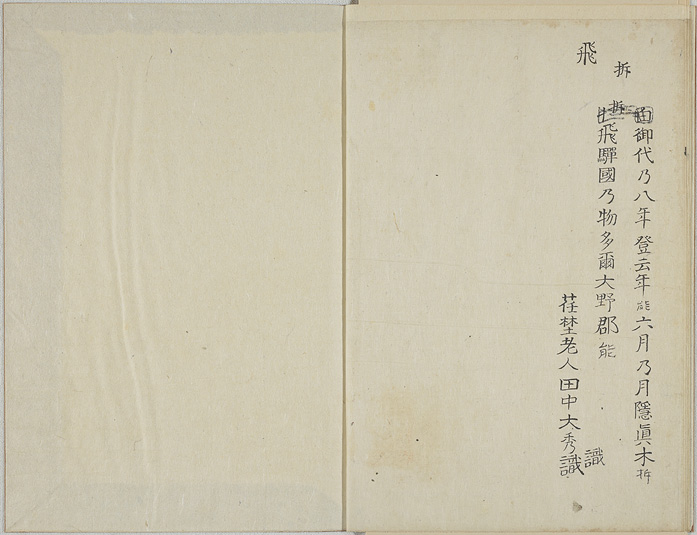 飛
拆
御代乃八年登云年能六月乃月隱眞木拆
拆
飛驒國乃物多爾大野郡能
荏埜老人田中大秀識
識